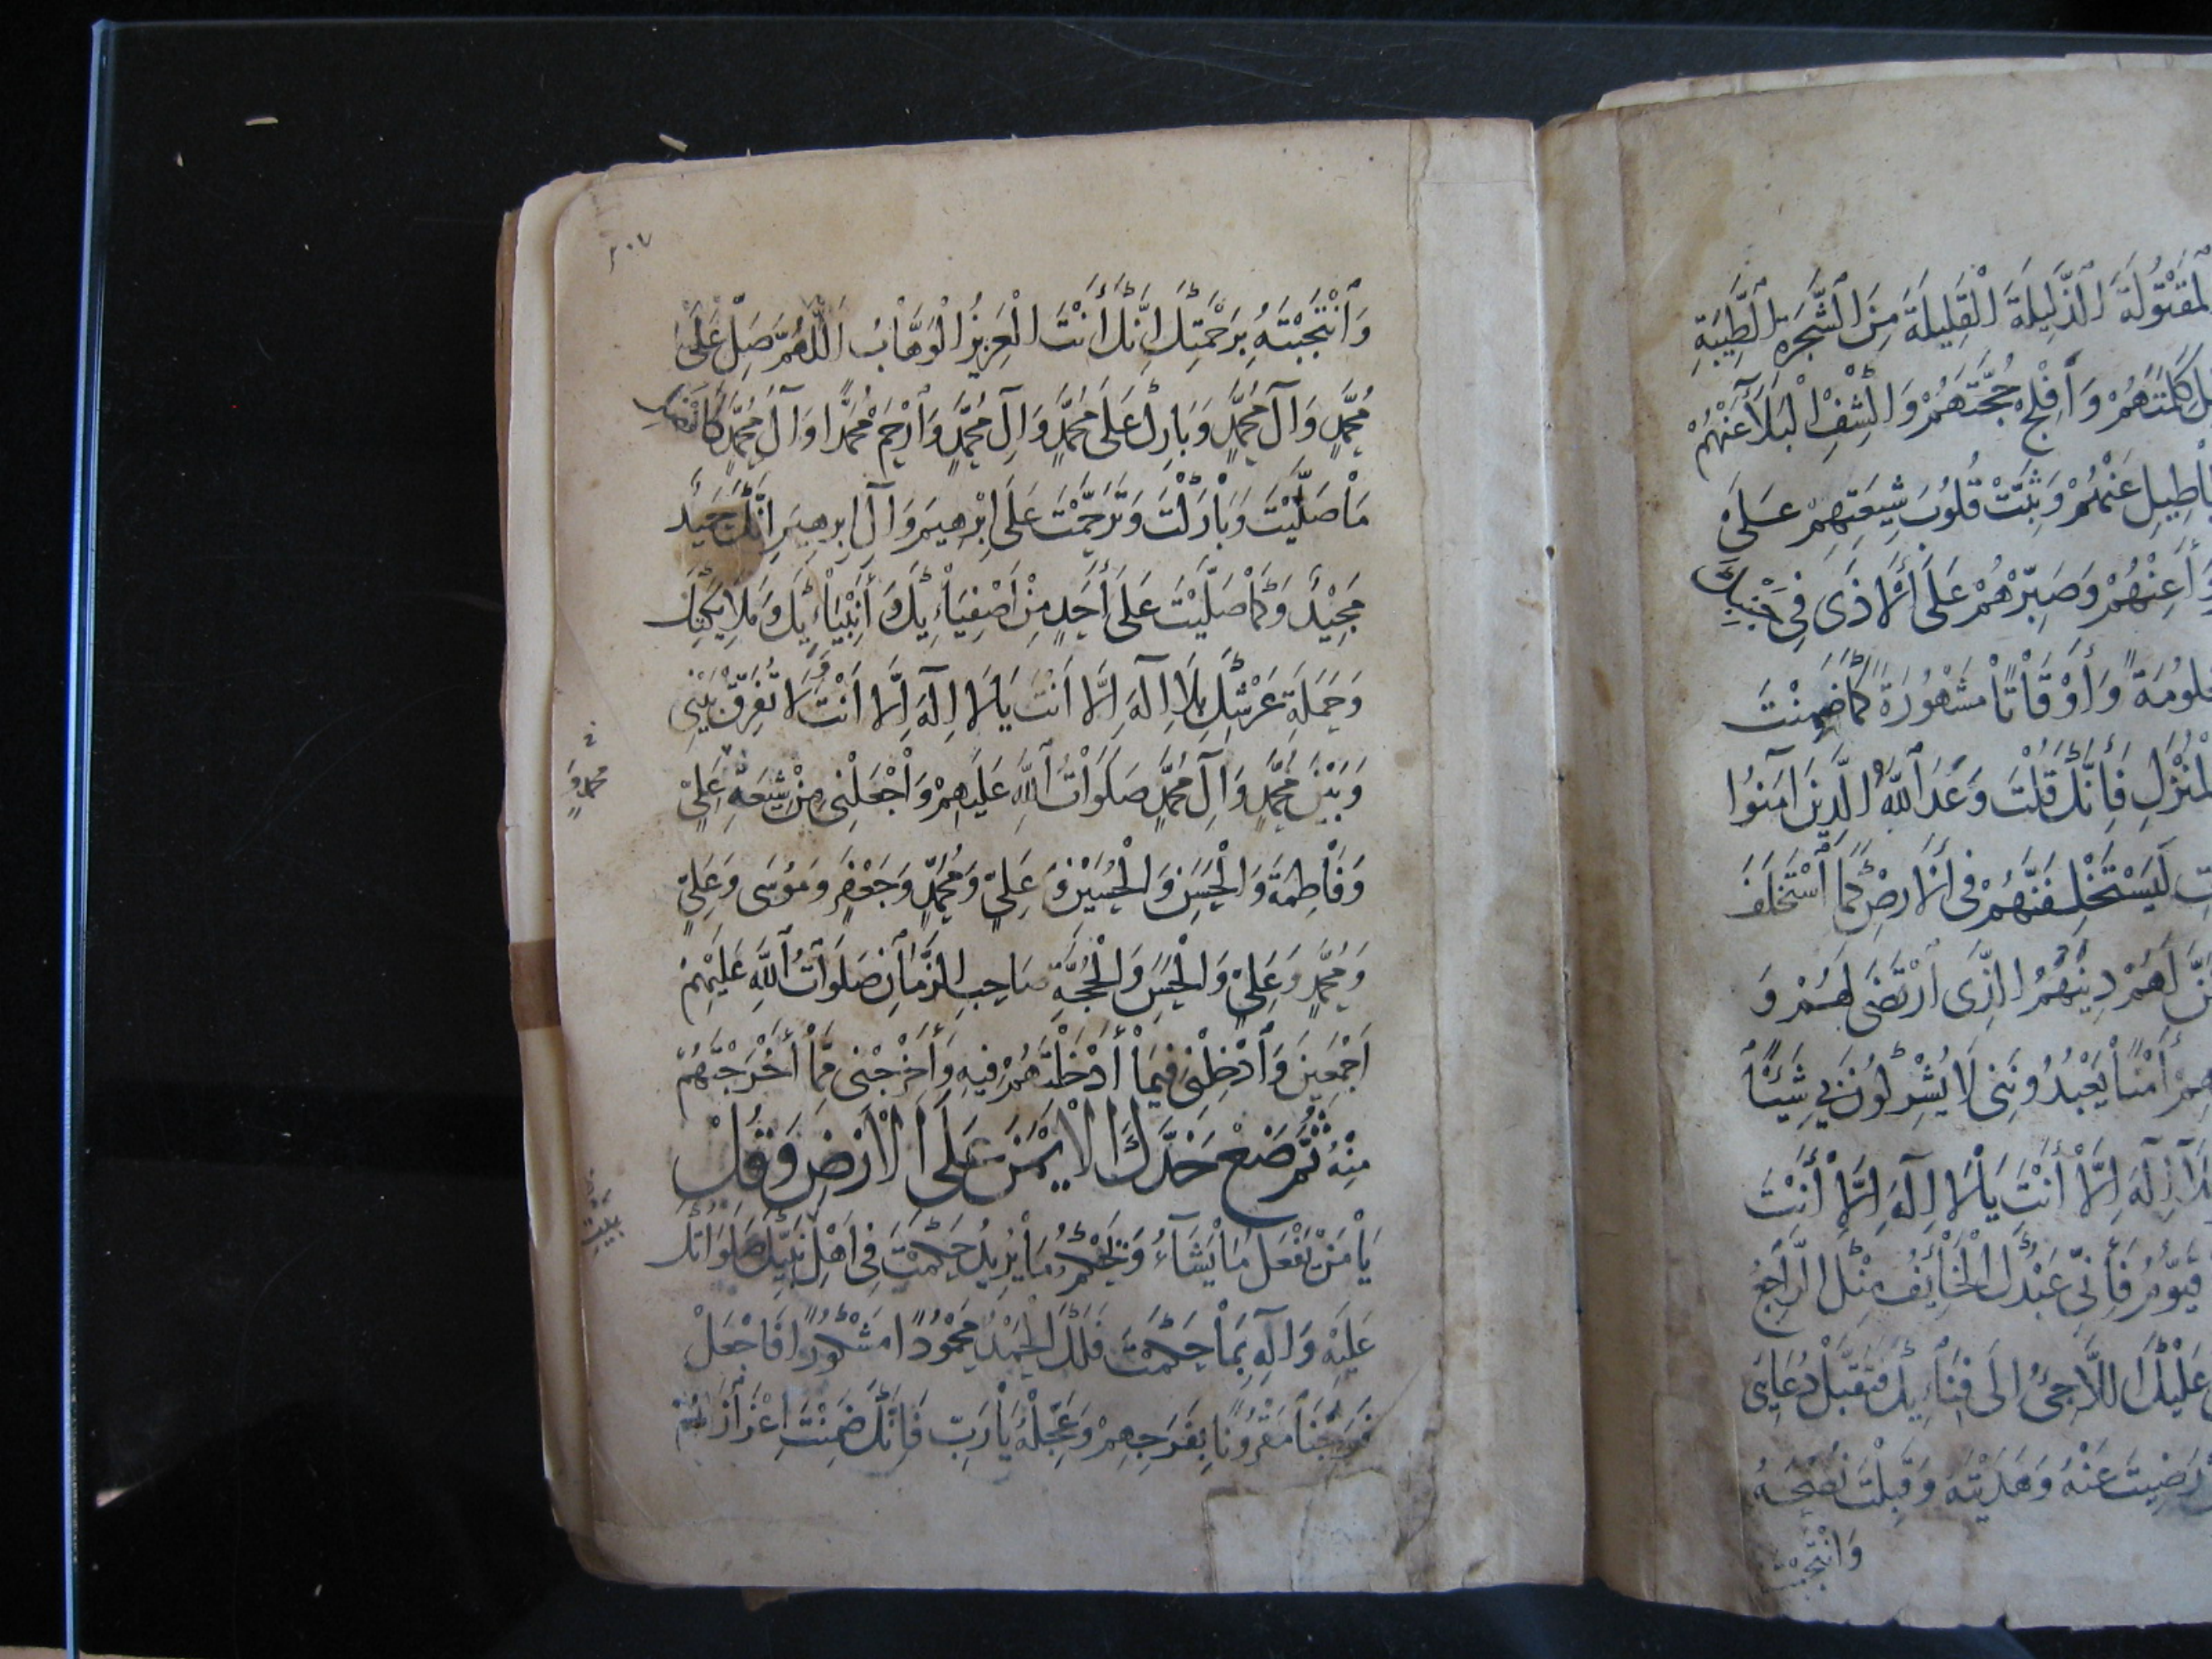 لْمَقْتُولَةَ الذَّلِيلَةَ الْقَلِيلَةَ مِنَ الشَّجَرَةِ الطَّيِّبَةِ
كَلِمَتَهُمْ وَأَفْلِجْ حُجَّتَهُمْ وَاكْشِفِ الْبَلَاءَ عَنْهُمْ
عَنْهُمْ وَثَبِّتْ قُلُوبَ شِيعَتِهِمْ عَلَى
وَأَعِنْهُمْ وَصَبِّرْهُمْ عَلَى الْأَذَى فِي جَنْبِكَ
وَأَوْقَاتًا مَشْهُورَةً كَمَا ضَمِنْتَ
لْمُنْزَلِ فَإِنَّكَ قُلْتَ وَعَدَ اللَّهُ الَّذِينَ آمَنُوا
لَيَسْتَخْلِفَنَّهُمْ فِي الْأَرْضِ كَمَا اسْتَخْلَفَ
لَهُمْ دِينَهُمُ الَّذِي ارْتَضَى لَهُمْ وَ
أَمْنًا يَعْبُدُونَنِي لَا يُشْرِكُونَ بِي شَيْئًا
إِلَهَ إِلَّا أَنْتَ يَا لَا إِلَهَ إِلَّا أَنْتَ
فَإِنِّي عَبْدُكَ الْخَائِفُ مِنْكَ الرَّاجِعُ
عَلَيْكَ اللَّاجِئُ إِلَى فِنَائِكَ فَتَقَبَّلْ دُعَايِي
رَضِيتَ عَنْهُ وَهَدَيْتَهُ وَقَبِلْتَ نُصْحَهُ
وَانْتَجَبْتَهُ
٢٠٧
وَانْتَجَبْتَهُ بِرَحْمَتِكَ إِنَّكَ أَنْتَ الْعَزِيزُ الْوَهَّابُ اللَّهُمَّ صَلِّ عَلَى
مُحَمَّدٍ وَآلِ مُحَمَّدٍ وَبَارِكْ عَلَى مُحَمَّدٍ وَآلِ مُحَمَّدٍ وَارْحَمْ مُحَمَّدًا وَآلَ مُحَمَّدٍ كَأَفْضَلِ
مَا صَلَّيْتَ وَبَارَكْتَ وَتَرَحَّمْتَ عَلَى إِبْرٰهِيمَ وَآلِ إِبْرٰهِيمَ إِنَّكَ حَمِيدٌ
مَجِيدٌ وَكَمَا صَلَّيْتَ عَلَى أَحَدٍ مِنْ أَصْفِيَائِكَ وَأَنْبِيَائِكَ وَمَلَائِكَتِكَ
وَحَمَلَةِ عَرْشِكَ بِلَا إِلَهَ إِلَّا أَنْتَ يَا لَا إِلَهَ إِلَّا أَنْتَ لَا تُفَرِّقْ بَيْنِي
وَبَيْنَ مُحَمَّدٍ وَآلِ مُحَمَّدٍ صَلَوَاتُ اللَّهِ عَلَيْهِمْ وَاجْعَلْنِي مِنْ شِيعَةِ عَلِيٍّ
مُحَمَّدٍ وَ
وَفَاطِمَةَ وَالْحَسَنِ وَالْحُسَيْنِ وَعَلِيٍّ وَمُحَمَّدٍ وَجَعْفَرٍ وَمُوسَى وَعَلِيٍّ
وَمُحَمَّدٍ وَعَلِيٍّ وَالْحَسَنِ وَالْحُجَّةِ صَاحِبِ الزَّمَانِ صَلَوَاتُ اللَّهِ عَلَيْهِمْ
أَجْمَعِينَ وَأَدْخِلْنِي فِيمَا أَدْخَلْتَهُمْ فِيهِ وَأَخْرِجْنِي مِمَّا أَخْرَجْتَهُمْ
مِنْهُ ثُمَّ ضَعْ خَدَّكَ الْأَيْمَنَ عَلَى الْأَرْضِ وَقُلْ
يَا مَنْ يَفْعَلُ مَا يَشَاءُ وَيَحْكُمُ مَا يُرِيدُ حَكَمْتَ فِي أَهْلِ نَبِيِّكَ صَلَوَاتُكَ
عَلَيْهِ وَآلِهِ بِمَا حَكَمْتَ فَلَكَ الْحَمْدُ مَحْمُودًا مَشْكُورًا فَاجْعَلْ
فَرَجَنَا مَقْرُونًا بِفَرَجِهِمْ وَعَجِّلْهُ يَا رَبِّ فَإِنَّكَ ضَمِنْتَ إِعْزَازَهُمْ